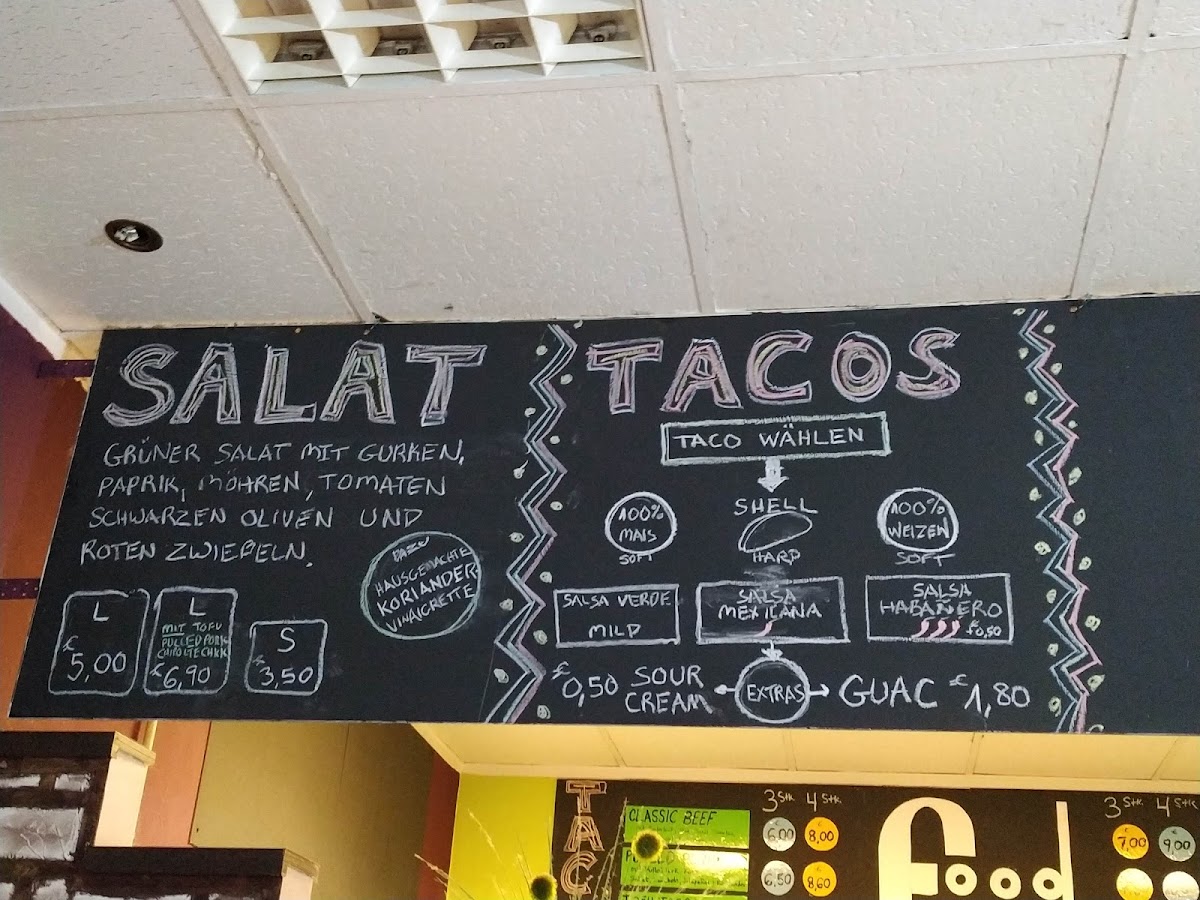 SALAT
GRÜNER SALAT MIT GURKEN,
PAPRIK, MÖHREN, TOMATEN
SCHWARZEN OLIVEN UND
ROTEN ZWIEBELN.
DAZU
HAUSGEMACHTE
KORIANDER
VINAIGRETTE
L
€ 5,00
L
MIT TOFU
PULLED PORK
€ 6,90
S
€ 3,50
TACOS
TACO WÄHLEN
100%
MAIS
SOFT
SHELL
HARD
100%
WEIZEN
SOFT
SALSA VERDE
MILD
SALSA
MEXICANA
SALSA
HABAÑERO
€0,50
€0,50 SOUR
CREAM
EXTRAS
GUAC €1,80
TAC
CLASSIC BEEF
3 Stk 4 Stk
6,00 8,00
6,50 8,60
food
3 Stk 4 Stk
7,00 9,00